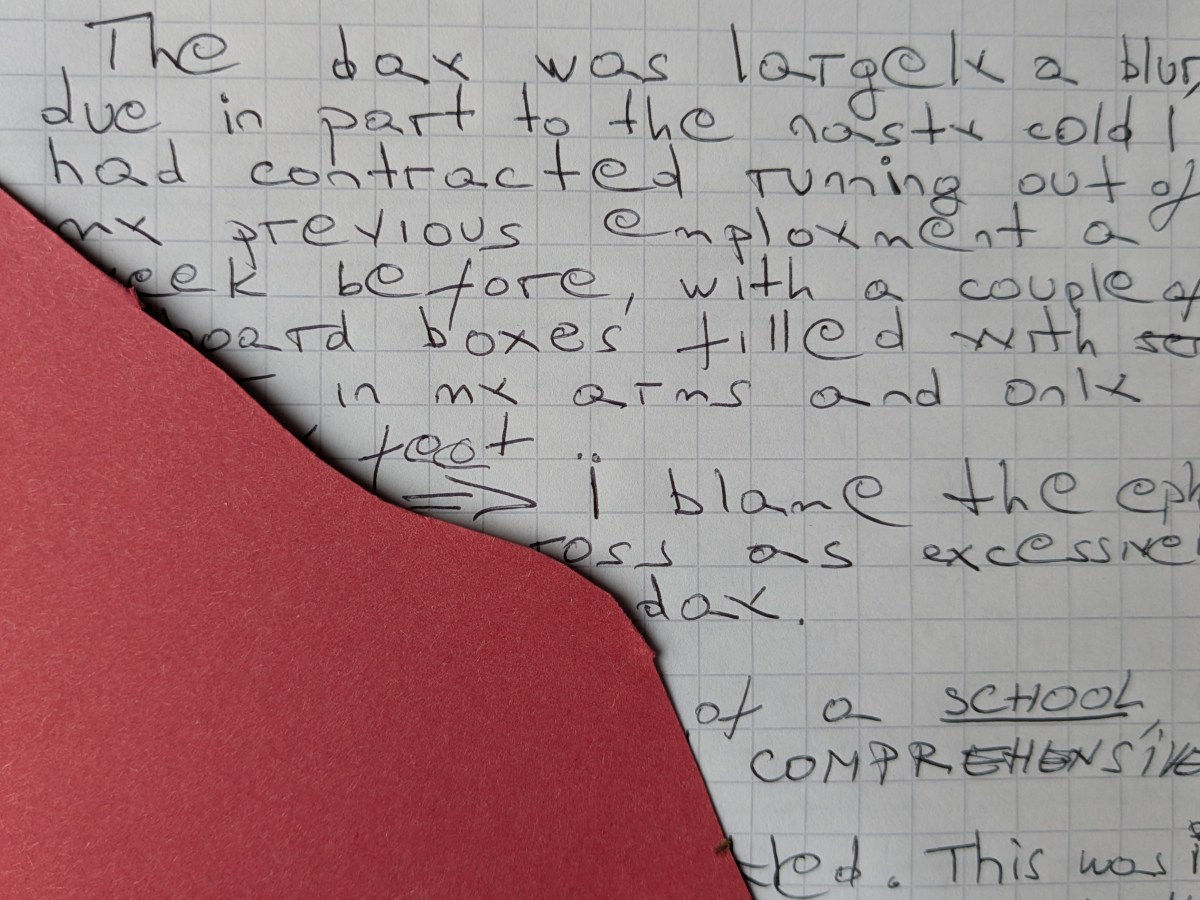 The day was largely a blur,
due in part to the nasty cold I
had contracted running out of
my previous employment a
before, with a couple of
boxes filled with
in my arms and only
foot
=> i blame the
as
day.
of a SCHOOL,
COMPREHENSIVE
This was